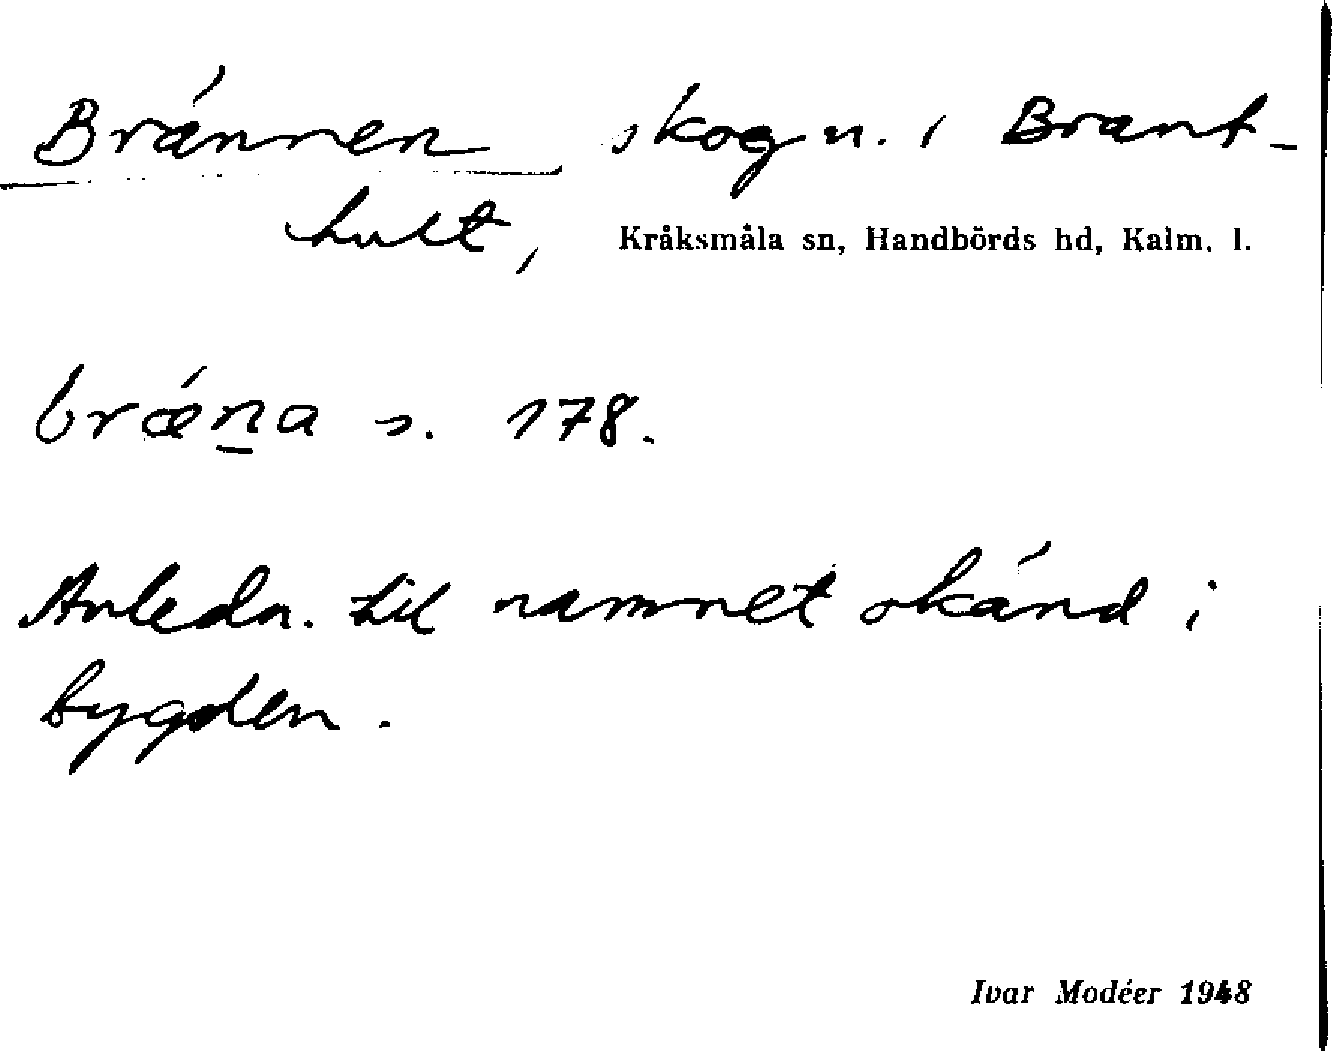 Brännen skogn. i Brant-
hult, Kråksmåla sn, Handbörds hd, Kalm. l.
bræ´n̲a s. 178.
Anledn. till namnet okänd i
bygden.
Ivar Modéer 1948